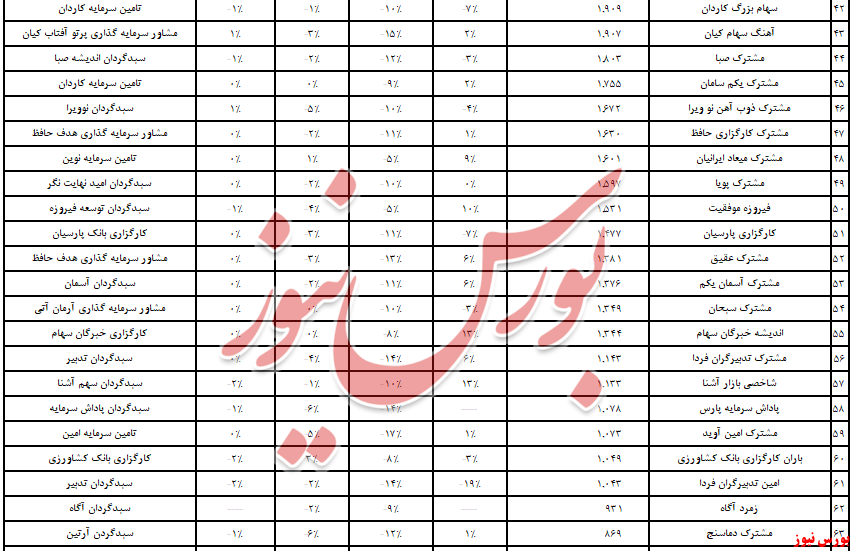 ۴۲ سهام بزرگ کاردان ۱.۹۰۹ -۷٪ -۱۰٪ -۱٪ -۱٪ تامین سرمایه کاردان
۴۳ آهنگ سهام کیان ۱.۹۰۷ ۲٪ -۱۵٪ -۳٪ ۱٪ مشاور سرمایه گذاری پرتو آفتاب کیان
۴۴ مشترک صبا ۱.۸۰۳ -۳٪ -۱۲٪ -۲٪ -۱٪ سبدگردان اندیشه صبا
۴۵ مشترک یکم سامان ۱.۷۵۵ ۲٪ -۹٪ ۰٪ ۰٪ تامین سرمایه کاردان
۴۶ مشترک ذوب آهن نو ویرا ۱.۶۷۲ -۴٪ -۱۰٪ -۵٪ ۱٪ سبدگردان نوویرا
۴۷ مشترک کارگزاری حافظ ۱.۶۳۰ ۱٪ -۱۱٪ -۲٪ ۰٪ مشاور سرمایه گذاری هدف حافظ
۴۸ مشترک میعاد ایرانیان ۱.۶۰۱ ۹٪ -۵٪ ۱٪ ۰٪ تامین سرمایه نوین
۴۹ مشترک پویا ۱.۵۹۷ ۰٪ -۱۰٪ -۲٪ ۰٪ سبدگردان امید نهایت نگر
۵۰ فیروزه موفقیت ۱.۵۳۱ ۱۰٪ -۵٪ -۴٪ -۱٪ سبدگردان توسعه فیروزه
۵۱ کارگزاری پارسیان ۱.۴۷۷ -۷٪ -۱۱٪ -۳٪ ۰٪ کارگزاری بانک پارسیان
۵۲ مشترک عقیق ۱.۳۸۱ ۶٪ -۱۳٪ -۳٪ ۰٪ مشاور سرمایه گذاری هدف حافظ
۵۳ مشترک آسمان یکم ۱.۳۷۶ ۶٪ -۱۱٪ -۲٪ ۰٪ سبدگردان آسمان
۵۴ مشترک سبحان ۱.۳۴۹ -۳٪ -۱۰٪ ۰٪ ۰٪ مشاور سرمایه گذاری آرمان آتی
۵۵ اندیشه خبرگان سهام ۱.۳۴۴ ۱۳٪ -۸٪ ۰٪ ۰٪ کارگزاری خبرگان سهام
۵۶ مشترک تدبیرگران فردا ۱.۱۴۳ ۶٪ -۱۴٪ -۴٪ ۰٪ سبدگردان تدبیر
۵۷ شاخصی بازار آشنا ۱.۱۳۳ ۱۳٪ -۱۰٪ -۱٪ -۲٪ سبدگردان سهم آشنا
۵۸ پاداش سرمایه پارس ۱.۰۷۸ —— -۱۴٪ -۶٪ -۱٪ سبدگردان پاداش سرمایه
۵۹ مشترک امین آوید ۱.۰۷۳ ۱٪ -۱۷٪ ۰٪ تامین سرمایه امین
۶۰ باران کارگزاری بانک کشاورزی ۱.۰۴۹ -۳٪ -۸٪ -۲٪ کارگزاری بانک کشاورزی
۶۱ امین تدبیرگران فردا ۱.۰۴۳ -۱۹٪ -۱۴٪ -۲٪ -۲٪ سبدگردان تدبیر
۶۲ زمرد آگاه ۹۳۱ —— -۹٪ -۲٪ —— سبدگردان آگاه
۶۳ مشترک دماسنج ۸۶۹ ۱٪ -۱۲٪ -۶٪ -۱٪ سبدگردن آرتین
بورس نیوز
بورس نیوز